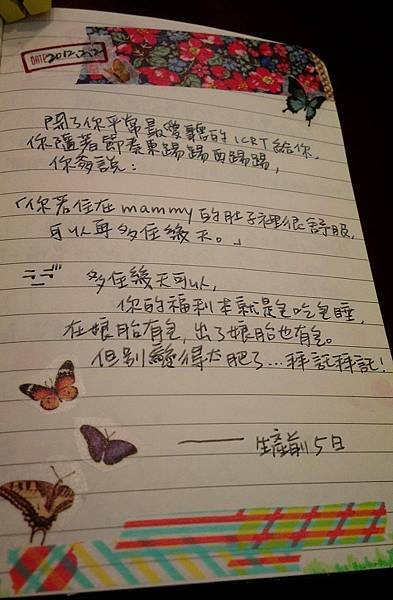 DATE 2012.2.2
開了你平常最愛聽的 ICRT 給你,
你隨著節奏東踢踢西踢踢,
你爹說:
「你若住在 mammy 的肚子裡很舒服,
可以再多住幾天。」
多住幾天可以,
你的福利本就是包吃包睡,
在娘胎有包, 出了娘胎也有包。
但別變得太肥了... 拜託拜託!
—— 生產前 5 日